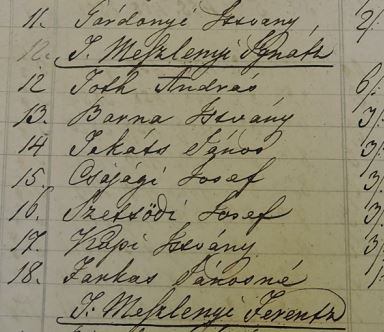 11. Gárdonyi Istvány, 2/:
12. T. Meszlenyi Ignátz
12 Toth András 6/:
13. Barna Istvány 3/:
14 Takáts János 3/:
15. Csajági Josef 3/
16. Szettsödi Josef 3/:
17. Kapi Istvány 3/:
18. Farkas Jánosné
T: Meszlenyi Ferentz